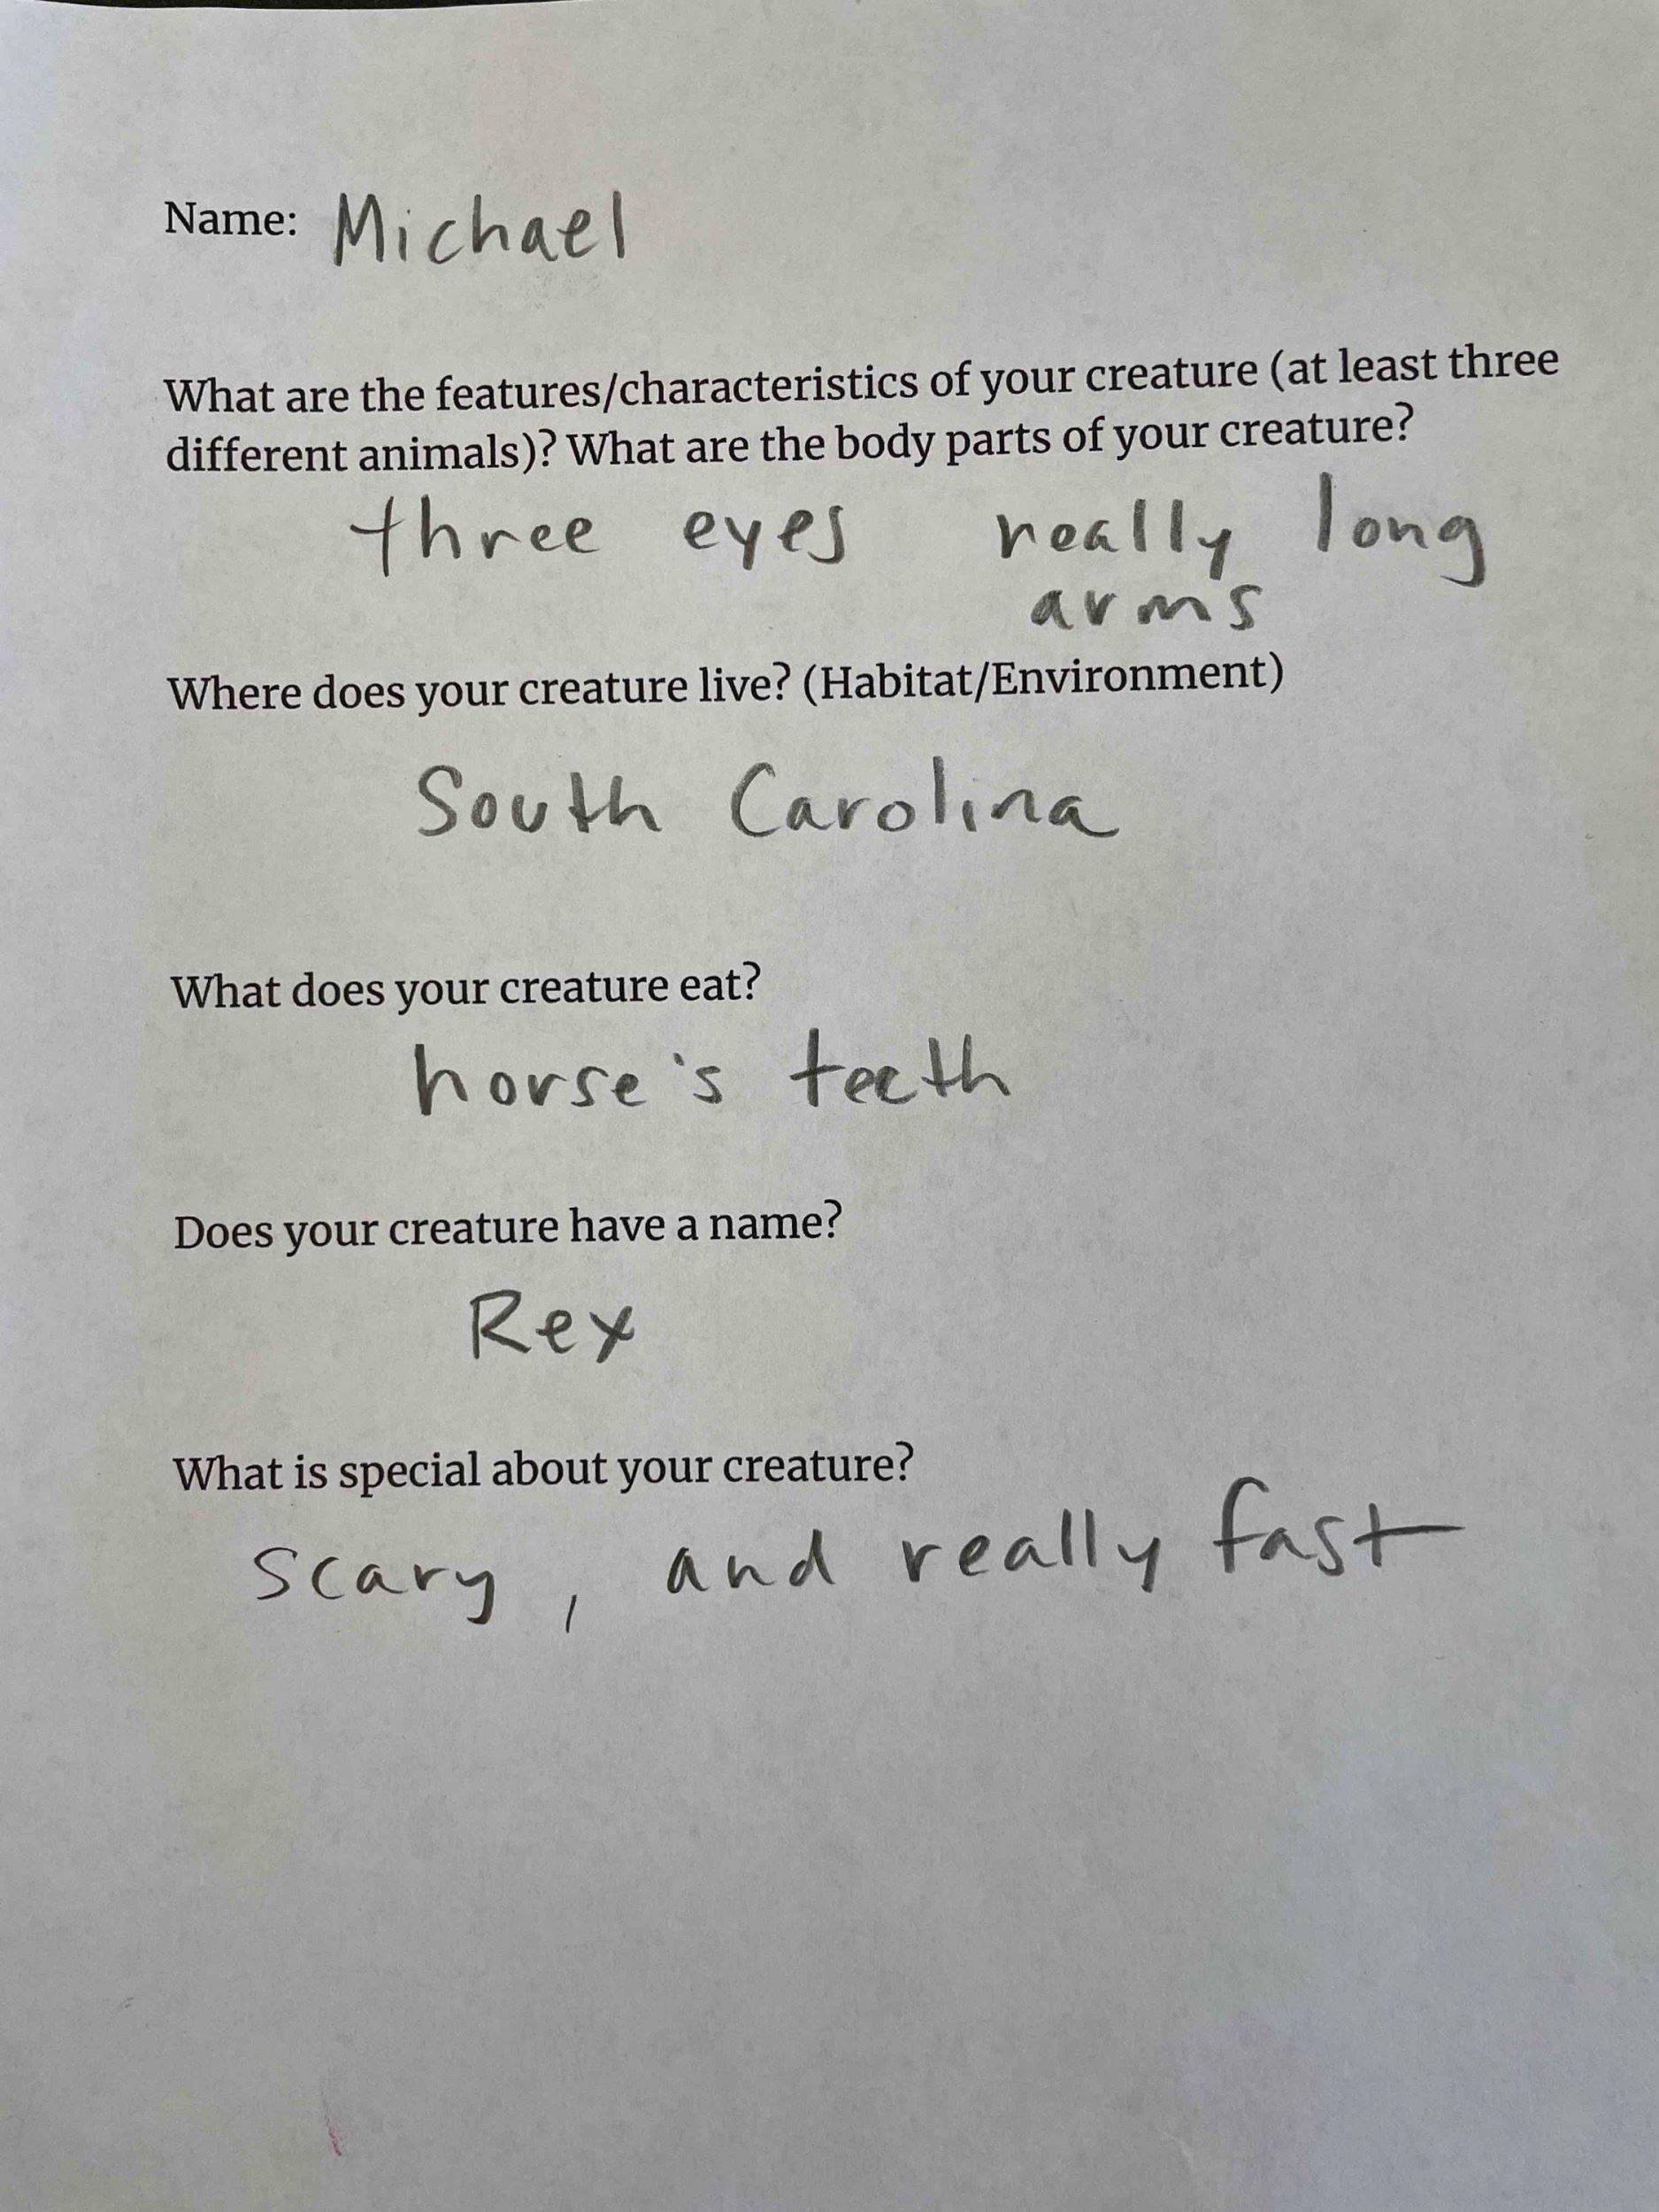 Name: Michael
What are the features/characteristics of your creature (at least three
different animals)? What are the body parts of your creature?
three eyes really long
arms
Where does your creature live? (Habitat/Environment)
South Carolina
What does your creature eat?
horse's teeth
Does your creature have a name?
Rex
What is special about your creature?
scary, and really fast